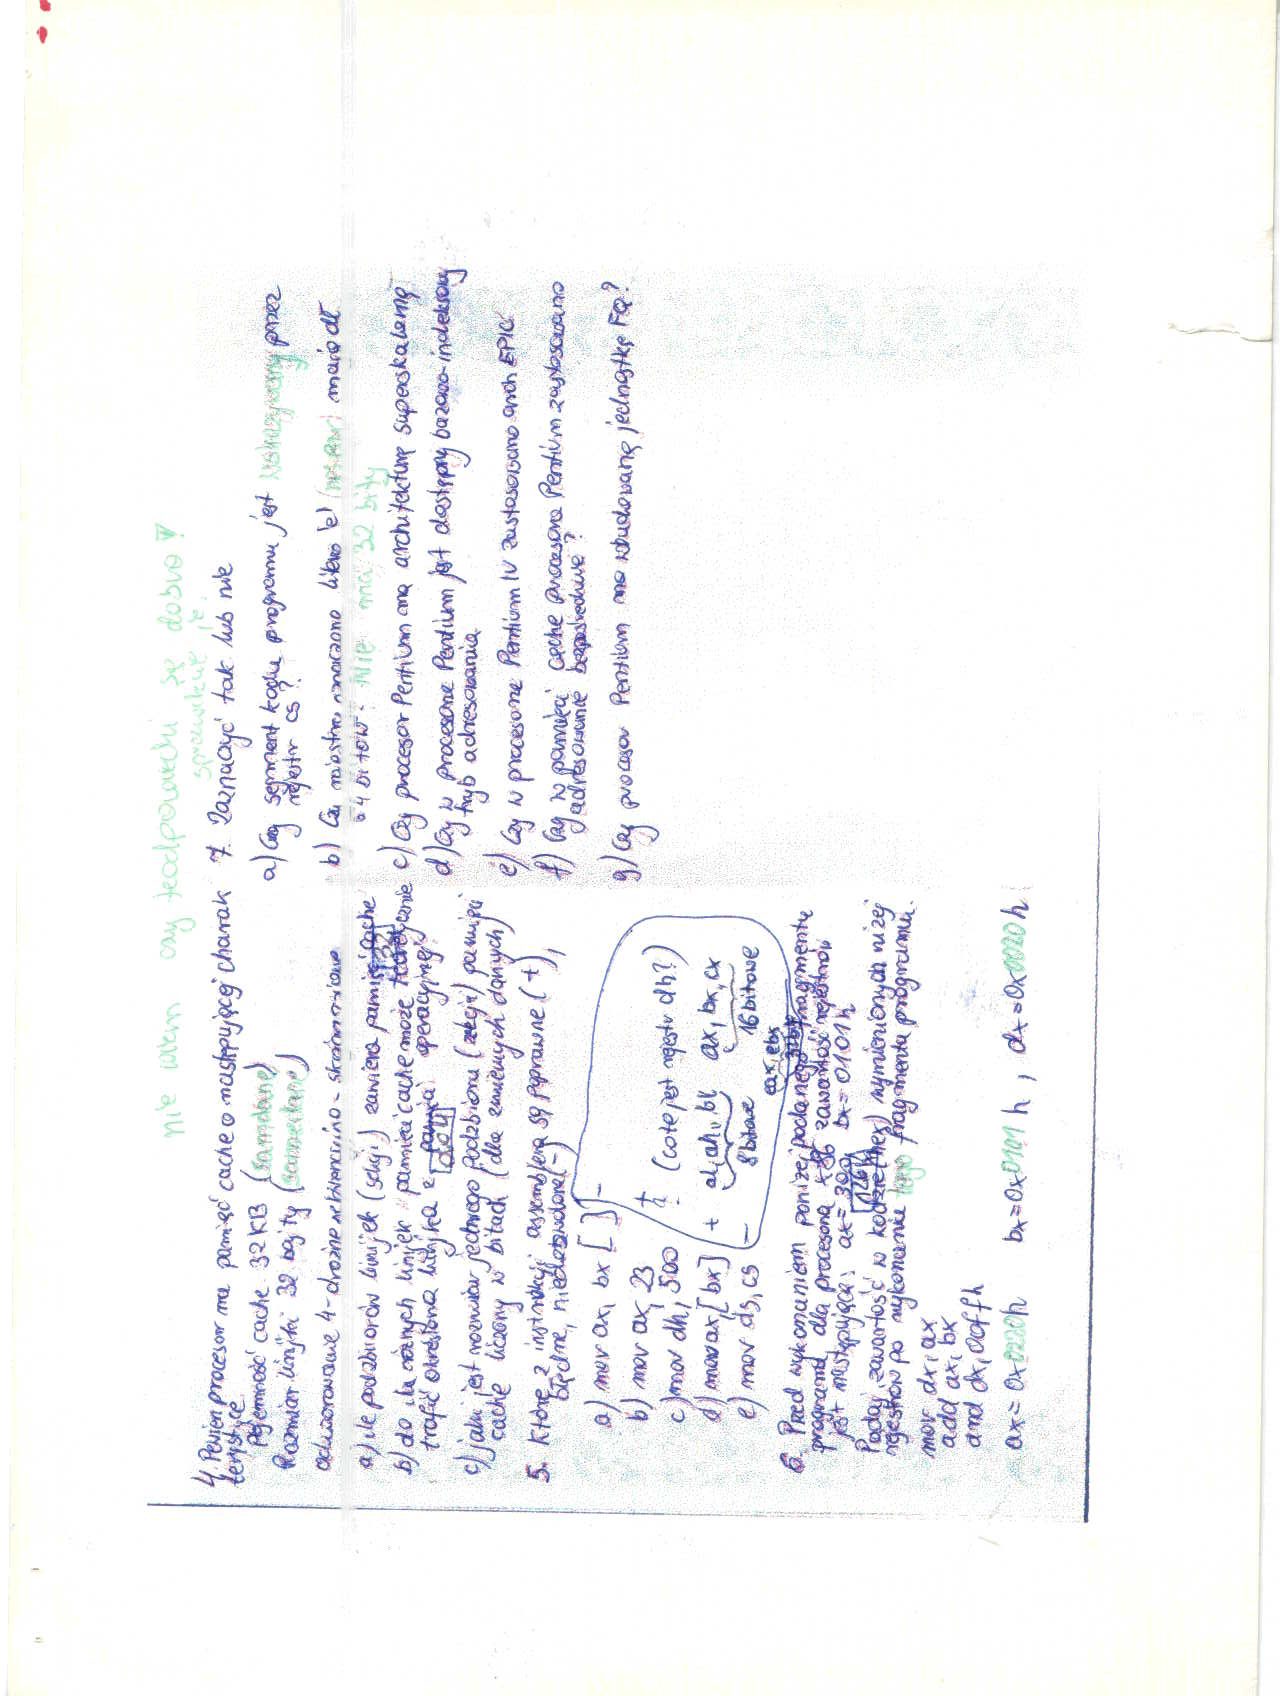 nie wiem czy te odpowiedzi są dobre!
sprawdźcie je.
4. Pewien procesor ma pamięć cache o następującej charak
terystyce
Pojemność cache 32KB (same dane)
Rozmiar linijki 32 bajty (same dane)
odwzorowanie 4-drożne sekwencyjno - skojarzeniowe
a) ile podzbiorów linijek (sekcji) zawiera pamięć cache
32
b) do ilu różnych linijek pamięci cache może teoretycznie
trafić określona linijka z pamięci operacyjnej
do 4
c) jaki jest rozmiar jednego podzbioru (sekcji) pamięci
cache liczony w bitach (dla danych)
5. Które z instrukcji assemblera są poprawne (+),
błędne, niedozwolone (-)
a) mov ax, bx [ ] -
b) mov ax, 23 +
c) mov dh, 500 ? (co to jest rejestr dh?)
d) mov ax, [bx] + al, ah, bl ax, bx, cx
e) mov ds, cs - 8bitowe 16bitowe
eax, ebx
32bit
6. Przed wykonaniem poniżej podanego fragmentu
programu dla procesora x86 zawartość rejestrów
jest następująca: ax = 300, bx = 0101h
126h
Podaj zawartość w kodzie (hex) wymienionych niżej
rejestrów po wykonaniu tego fragmentu programu.
mov dx, ax
add ax, bx
and dx, 00ffh
ax = 0x0220h bx = 0x0101 h , dx = 0x0020 h
7. Zaznaczyć tak lub nie
a) Czy segment kodu programu jest wskazywany przez
rejestr cs ?
b) Czy oznaczono literą 'e' mają dł.
64 bitów. Nie ma 32 bity
c) Czy procesor Pentium ma architekturę superskalarną
d) Czy w procesorze Pentium jest dostępny bazowo-indeksowy
tryb adresowania
e) Czy w procesorze Pentium IV zastosowano arch EPIC
f) Czy w pamięci cache procesora Pentium zastosowano
adresowanie bezpośrednie ?
g) Czy procesor Pentium ma wbudowaną jednostkę